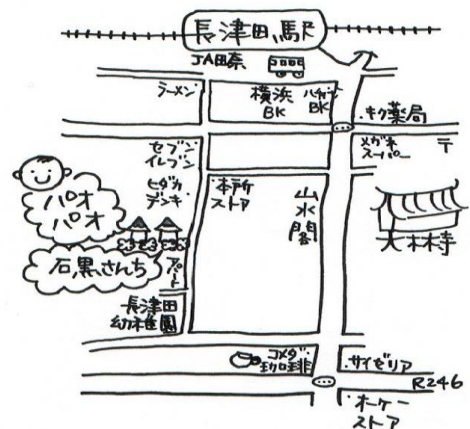 長津田駅
JA田奈
ラーメン
横浜
BK
キク薬局
セブン
イレブン
メガネ
スーパー
〒
ヒダカ
デンキ
本所
ストア
山水閣
大林寺
パオ
パオ
石黒さんち
アパート
長津田
幼稚園
コメダ
珈琲
サイゼリア
R246
オーケー
ストア